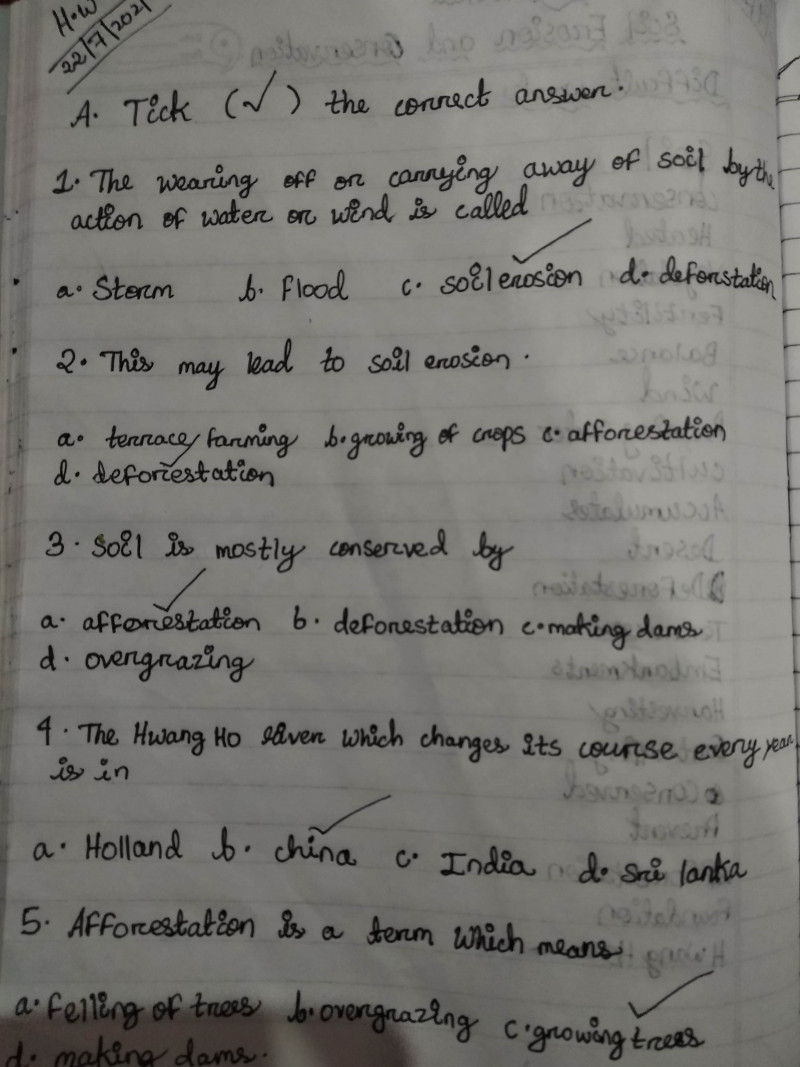 H.W
22/7/2021
A. Tick (✓) the correct answer.
1. The wearing off or carrying away of soil by the
action of water or wind is called
a. Storm b. flood c. soil erosion d. deforstation
2. This may lead to soil erosion.
a. terrace farming b. growing of crops c. afforestation
d. deforestation
3. Soil is mostly conserved by
a. afforestation b. deforestation c. making dams
d. overgrazing
4. The Hwang Ho River which changes its course every year
is in
a. Holland b. china c. India d. Sri lanka
5. Afforestation is a term which means
a. felling of trees b. overgrazing c. growing trees
d. making dams.